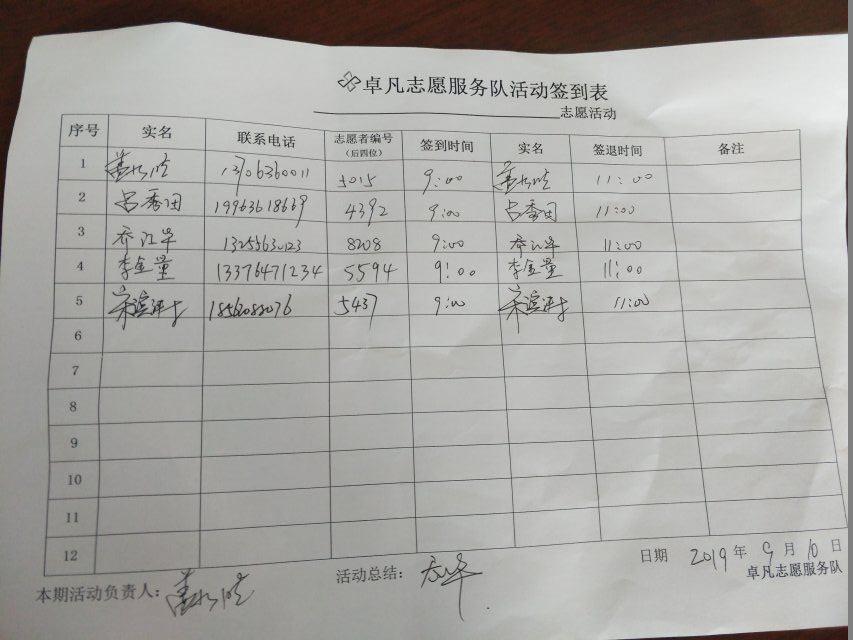 卓凡志愿服务队活动签到表
志愿活动
序号 实名 联系电话 志愿者编号(后四位) 签到时间 实名 签退时间 备注
1 13706360011 5015 9:00 11:00
2 吕秀田 19963618669 4392 9:00 吕秀田 11:00
3 乔江华 13255630123 8208 9:00 乔江华 11:00
4 李金量 13376471234 5594 9:00 李金量 11:00
5 5437 9:00 11:00
6
7
8
9
10
11
12
日期 2019年9月10日
本期活动负责人: 活动总结:
卓凡志愿服务队